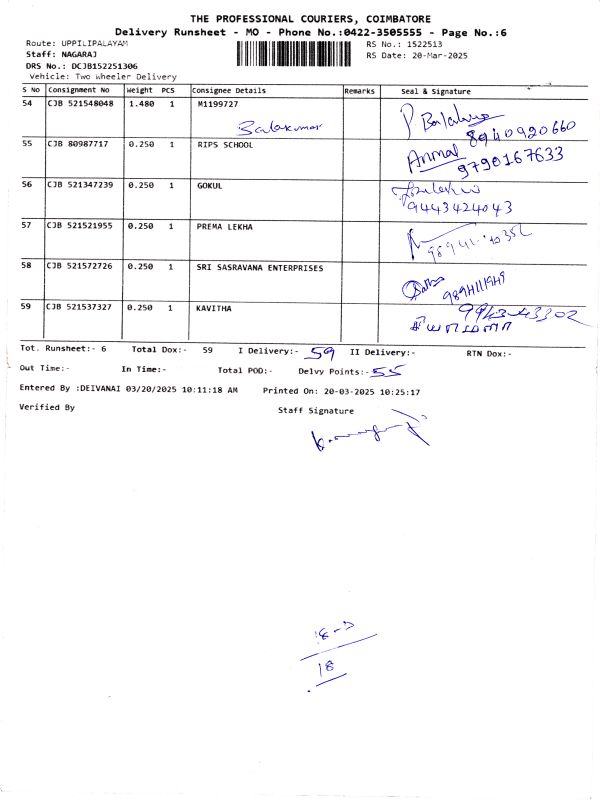 THE PROFESSIONAL COURIERS, COIMBATORE
Delivery Runsheet - MO - Phone No.:0422-3505555 - Page No.:6
Route: UPPILIPALAYAM RS No.: 1522513
Staff: NAGARAJ RS Date: 20-Mar-2025
DRS No.: DCJB152251306
Vehicle: Two Wheeler Delivery
S No Consignment No Weight PCS Consignee Details Remarks Seal & Signature
54 CJB 521548048 1.480 1 M1199727
Balakumar 8940920660
55 CJB 80987717 0.250 1 RIPS SCHOOL
9790167633
56 CJB 521347239 0.250 1 GOKUL
9443424043
57 CJB 521521955 0.250 1 PREMA LEKHA
58 CJB 521572726 0.250 1 SRI SASRAVANA ENTERPRISES
59 CJB 521537327 0.250 1 KAVITHA
Tot. Runsheet:- 6 Total Dox:- 59 I Delivery:- 59 II Delivery:- RTN Dox:-
Out Time:- In Time:- Total POD:- Delvy Points:- 55
Entered By :DEIVANAI 03/20/2025 10:11:18 AM Printed On: 20-03-2025 10:25:17
Verified By Staff Signature
18